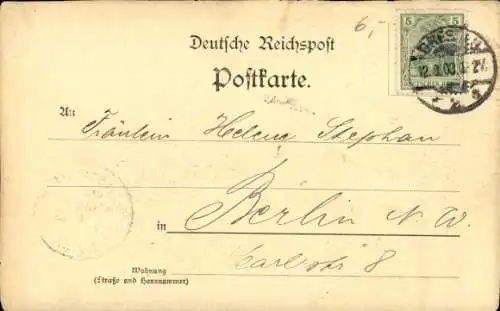 6,-
5 5
12. 03.
Deutsche Reichspost
Postkarte.
An Fräulein Helene Stephan
in Berlin N. W.
Carlstr 8
Wohnung
(Straße und Hausnummer)